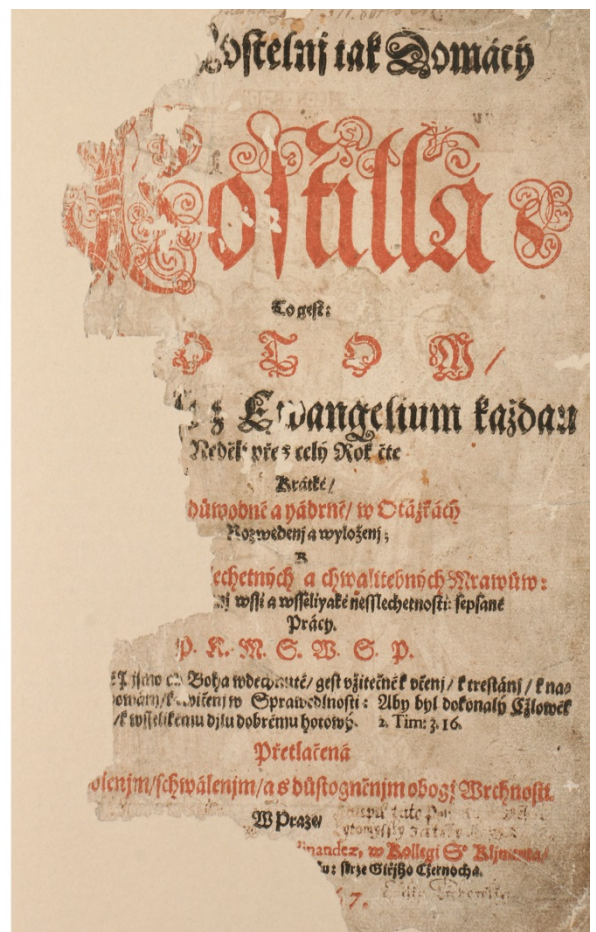 kostelnj tak Domácý
Postilla
To gest:
O T O M /
z Ewangelium každau
Neděli přes celý Rok čte
Krátké /
důwodně a yádrně / w Otázkách
Rozwedenj a wyloženj ;
K
lechetných a chwalitebných Mrawůw :
wsti a wsseliyaké nesslechetnosti: sepsané
Prácý.
P. K. M. S. W. S. P.
Pjsmo od Boha wdechnuté / gest vžitečné k včenj / k trestánj / k na⸗
/ k cwičenj w Sprawedlnosti : Aby byl dokonalý Cžlowěk
/ k wsselikému djlu dobrému hotowý. 2. Tim: 3. 16.
Přetlačená
olenjm / schwálenjm / a s důstogněnjm obogj Wrchnosti.
W Praze /
inandez, w Kollegi Sº Klimenta /
: skrze Giřjho Cžernocha.
7.